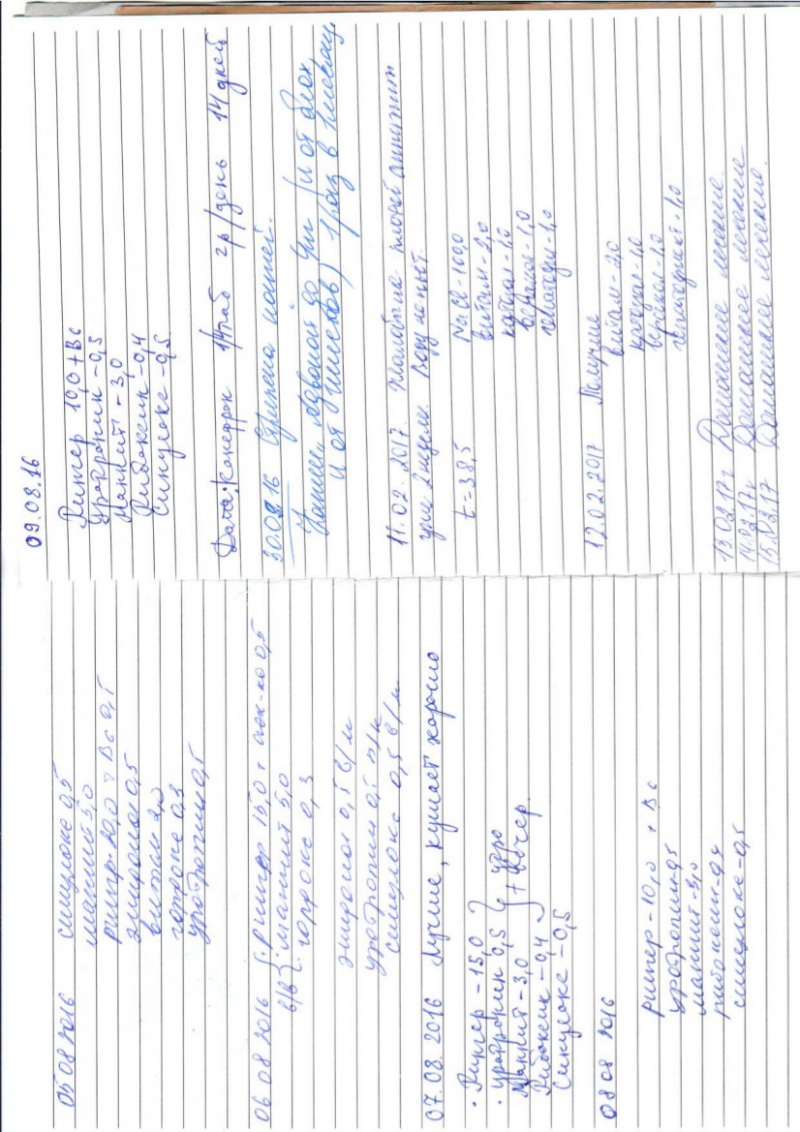 05 08 2016 синулокс 0,5
манит 5,0
рингер 20,0 + Вс 0,5
0,5
витам 2,0
гордокс 0,3
уротропин 0,5
06 08 2016 в/в { Рингер 15,0 + 0,5
манит 5,0
гордокс 0,3
0,5 в/м
уротропин 0,5 п/к
синулокс 0,5 в/м
07.08.2016 Лучше, кушает хорошо
· Рингер - 15,0
· уротропин 0,5 } утро
Маннит - 3,0 + вечер.
Рибоксин - 0,4
Синулокс - 0,5
08 08 2016
рингер - 10,0 + Вс
уротропин - 0,5
манит - 3,0
рибоксин - 0,4
синулокс - 0,5
09.08.16
Рингер 10,0 + Вс
Уротропин - 0,5
Маннит - 3,0
Рибоксин - 0,4
Синулокс - 0,5
Дата: 1/4 таб 2р/день 14 дней
30.08.16 Стрижка когтей.
Капли Адвокат до (и от блох
и от ) 1 раз в месяц
11.02.2017. Жалобы на плохой аппетит
Воду не пьет.
t = 38,5 NaCl - 100,0
витам - 2,0
катозал - 1,0
веракол - 1,0
1,0
12.02.2017 Получше
витам - 2,0
катозал - 1,0
веракол - 1,0
1,0
13.02.17г Домашнее лечение.
14.02.17г Домашнее лечение
15.02.17 Домашнее лечение.